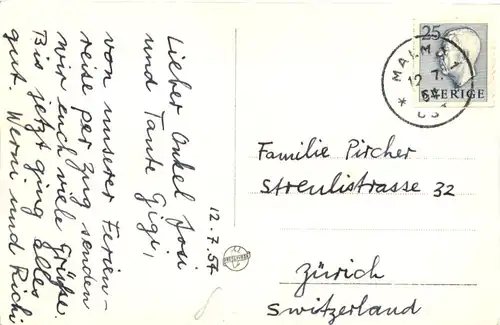 12.7.54
Lieber Onkel Joni
und Tante Gigi,
von unserer Ferien-
reise per Zug senden
wir euch viele Grüße.
Bis jetzt ging alles
gut. Werni und Richi
25
SVERIGE
MALMÖ 1
12.7.
54
Familie Pircher
Streulistrasse 32
Zürich
Switzerland